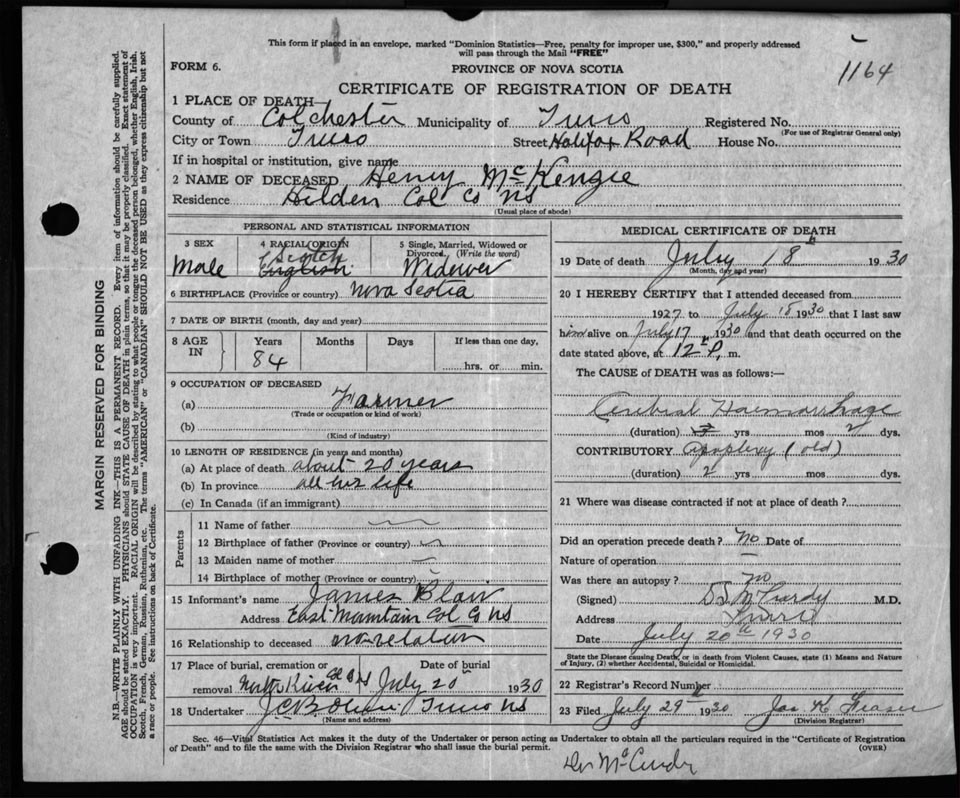 This form if placed in an envelope, marked "Dominion Statistics—Free, penalty for improper use, $300," and properly addressed
will pass through the Mail "FREE"
1164
FORM 6.
PROVINCE OF NOVA SCOTIA
CERTIFICATE OF REGISTRATION OF DEATH
1 PLACE OF DEATH—
County of Colchester Municipality of Truro Registered No.
(For use of Registrar General only)
City or Town Truro Street Halifax Road House No.
If in hospital or institution, give name
2 NAME OF DECEASED Henry McKenzie
Residence Hilden Col Co NS
(Usual place of abode)
PERSONAL AND STATISTICAL INFORMATION
3 SEX 4 RACIAL ORIGIN 5 Single, Married, Widowed or Divorced. (Write the word)
Male Scotch English Widower
6 BIRTHPLACE (Province or country) Nova Scotia
7 DATE OF BIRTH (month, day and year)
8 AGE IN Years Months Days If less than one day,
84 hrs. or min.
9 OCCUPATION OF DECEASED
(a) Farmer
(Trade or occupation or kind of work)
(b)
(Kind of industry)
10 LENGTH OF RESIDENCE (in years and months)
(a) At place of death about 20 years
(b) In province all his life
(c) In Canada (if an immigrant)
Parents
11 Name of father
12 Birthplace of father (Province or country)
13 Maiden name of mother
14 Birthplace of mother (Province or country)
15 Informant's name James Blair
Address East Mountain Col Co NS
16 Relationship to deceased no relation
17 Place of burial, cremation or removal North River Col Co NS
Date of burial July 20th 1930
18 Undertaker Truro NS
(Name and address)
MEDICAL CERTIFICATE OF DEATH
19 Date of death July 18th 1930
(Month, day and year)
20 I HEREBY CERTIFY that I attended deceased from
1927 to July 18 1930 that I last saw
him alive on July 17 1930 and that death occurred on the
date stated above, at 12 P. m.
The CAUSE of DEATH was as follows:—
Cerebral Haemorrhage
(duration) yrs mos 2 dys.
CONTRIBUTORY apoplexy (old)
(duration) 2 yrs mos dys.
21 Where was disease contracted if not at place of death?
Did an operation precede death? no Date of
Nature of operation —
Was there an autopsy? no
(Signed) M.D.
Address Truro
Date July 20th 1930
State the Disease causing Death, or in death from Violent Causes, state (1) Means and Nature
of Injury, (2) whether Accidental, Suicidal or Homicidal.
22 Registrar's Record Number
23 Filed July 29th 1930 Jas K Fraser
(Division Registrar)
Sec. 46—Vital Statistics Act makes it the duty of the Undertaker or person acting as Undertaker to obtain all the particulars required in the "Certificate of Registration
of Death" and to file the same with the Division Registrar who shall issue the burial permit.
(OVER)
Dr McCurdy
MARGIN RESERVED FOR BINDING
N.B.—WRITE PLAINLY WITH UNFADING INK—THIS IS A PERMANENT RECORD. Every item of information should be carefully supplied.
AGE should be stated EXACTLY. PHYSICIANS should STATE CAUSE OF DEATH in plain terms, so that it may be properly classified. Exact statement of
OCCUPATION is very important. RACIAL ORIGIN will be described by stating to what people or tongue the deceased person belonged, whether English, Irish,
Scotch, French, German, Russian, Ruthenian, etc. The terms "AMERICAN" or "CANADIAN" SHOULD NOT BE USED as they express citizenship but not
a race or people. See instructions on back of Certificate.